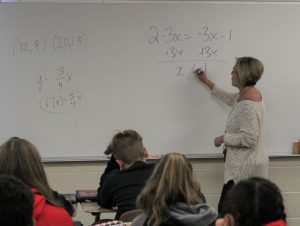 (12,9) (20,15)
y = 3/4 x
f(x) = 3/4 x
2-3x = -3x-1
+3x +3x
2 ≠ -1